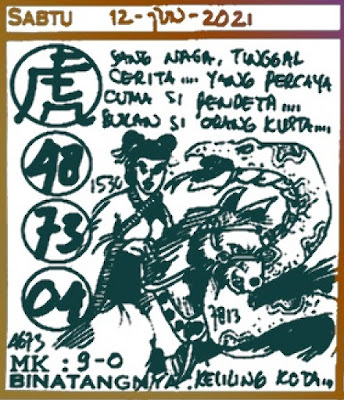 SABTU 12-JUN-2021
虎
SANG NAGA, TINGGAL
CERITA.... YANG PERCAYA
CUMA SI PENDETA....
BUKAN SI ORANG KUSTA....
48
1530
73
04
7813
4673
MK : 9-0
BINATANGNYA KELILING KOTA...